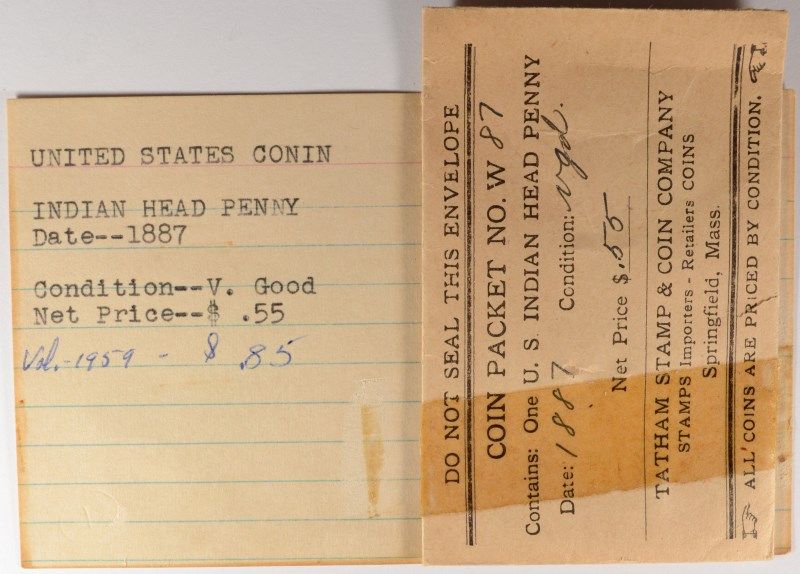 UNITED STATES CONIN
INDIAN HEAD PENNY
Date--1887
Condition--V. Good
Net Price--$ .55
Val.-1959 - $ .85
DO NOT SEAL THIS ENVELOPE
COIN PACKET NO. W 87
Contains: One U. S. INDIAN HEAD PENNY
Date: 1887 Condition: vgd.
Net Price $.55
TATHAM STAMP & COIN COMPANY
STAMPS Importers - Retailers COINS
Springfield, Mass.
ALL COINS ARE PRICED BY CONDITION.